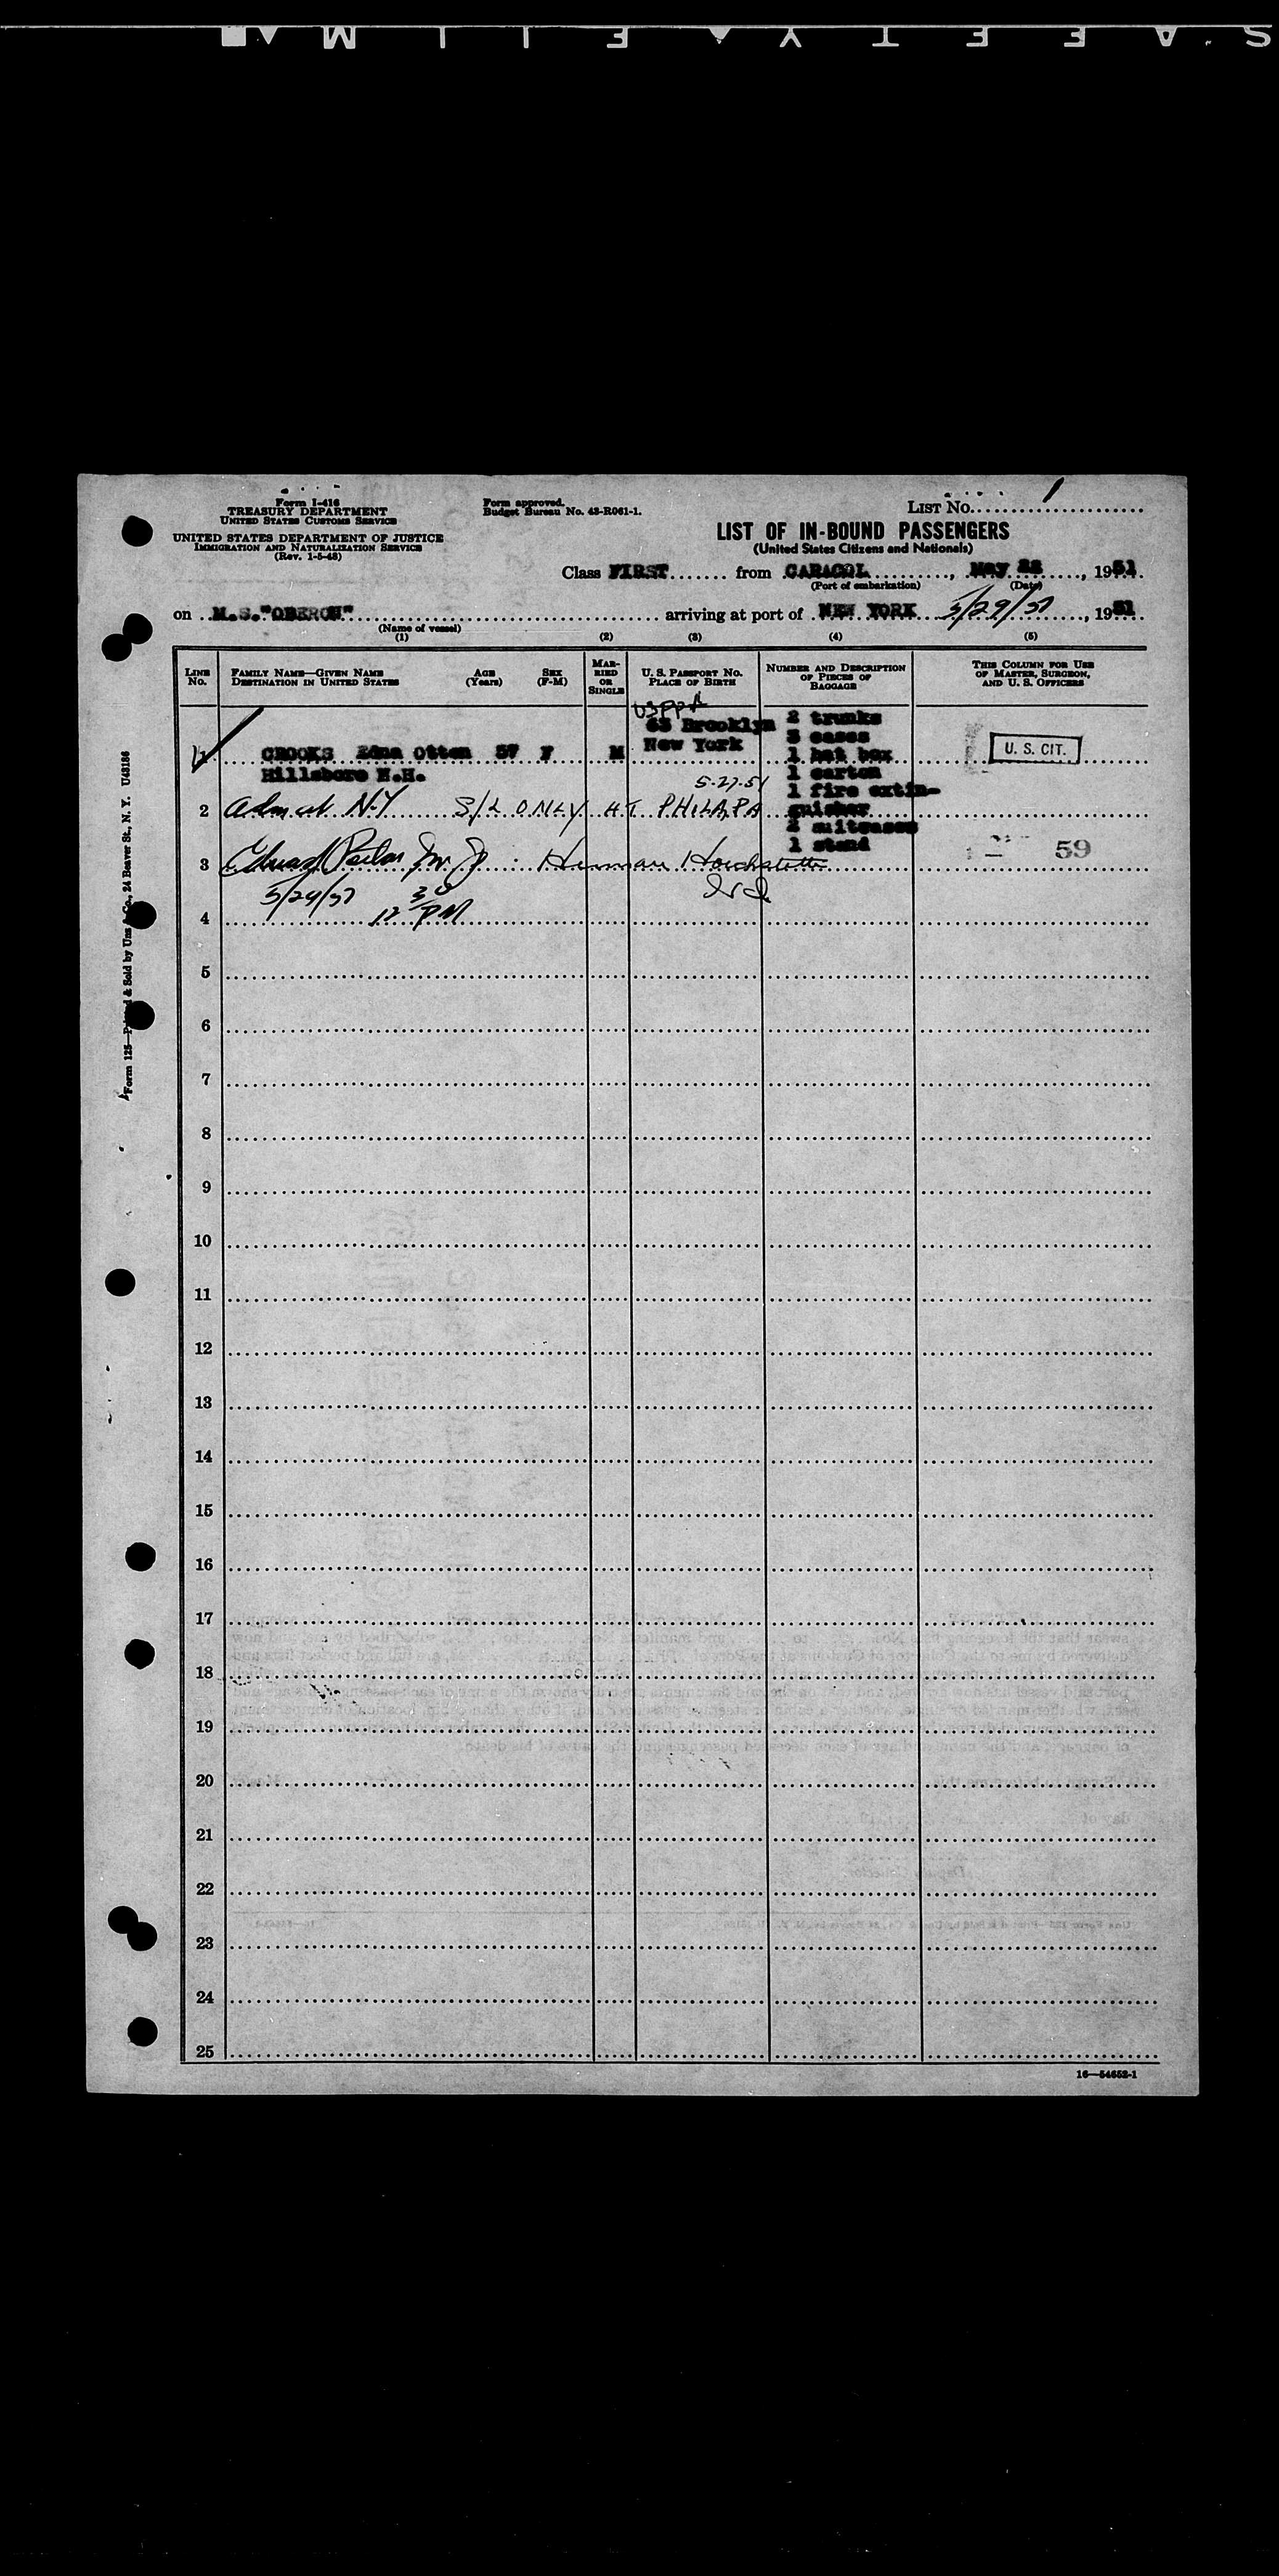 SAFETY FILM
Form I-416
TREASURY DEPARTMENT
UNITED STATES CUSTOMS SERVICE
UNITED STATES DEPARTMENT OF JUSTICE
IMMIGRATION AND NATURALIZATION SERVICE
(Rev. 1-5-48)
Form approved.
Budget Bureau No. 43-R061-1.
LIST No. 1
LIST OF IN-BOUND PASSENGERS
(United States Citizens and Nationals)
Class FIRST from CARACOL, May 22, 1951
(Port of embarkation) (Date)
on M.S. "OBERON" arriving at port of NEW YORK 5/29/51, 1951
(Name of vessel)
(1) (2) (3) (4) (5)
LINE No.
FAMILY NAME—GIVEN NAME DESTINATION IN UNITED STATES
AGE (Years)
SEX (F-M)
MARRIED OR SINGLE
U. S. PASSPORT No. PLACE OF BIRTH
NUMBER AND DESCRIPTION OF PIECES OF BAGGAGE
THIS COLUMN FOR USE OF MASTER, SURGEON, AND U. S. OFFICERS
USPP#
1 CROOKS Edna Otten 57 F M
63 Brooklyn
New York
Hillsboro N.H.
2 trunks
3 cases
1 hat box
1 carton
1 fire extin-
guisher
2 suitcases
1 stand
U. S. CIT.
5-27-51
2 Adm at N.Y S/L ONLY AT PHILA, PA
3 Herman Hochstetter
59
5/29/51 12 30 PM
4
5
6
7
8
9
10
11
12
13
14
15
16
17
18
19
20
21
22
23
24
25
16—54652-1
Form 125—Printed & Sold by Unz & Co., 24 Beaver St., N. Y. U43186